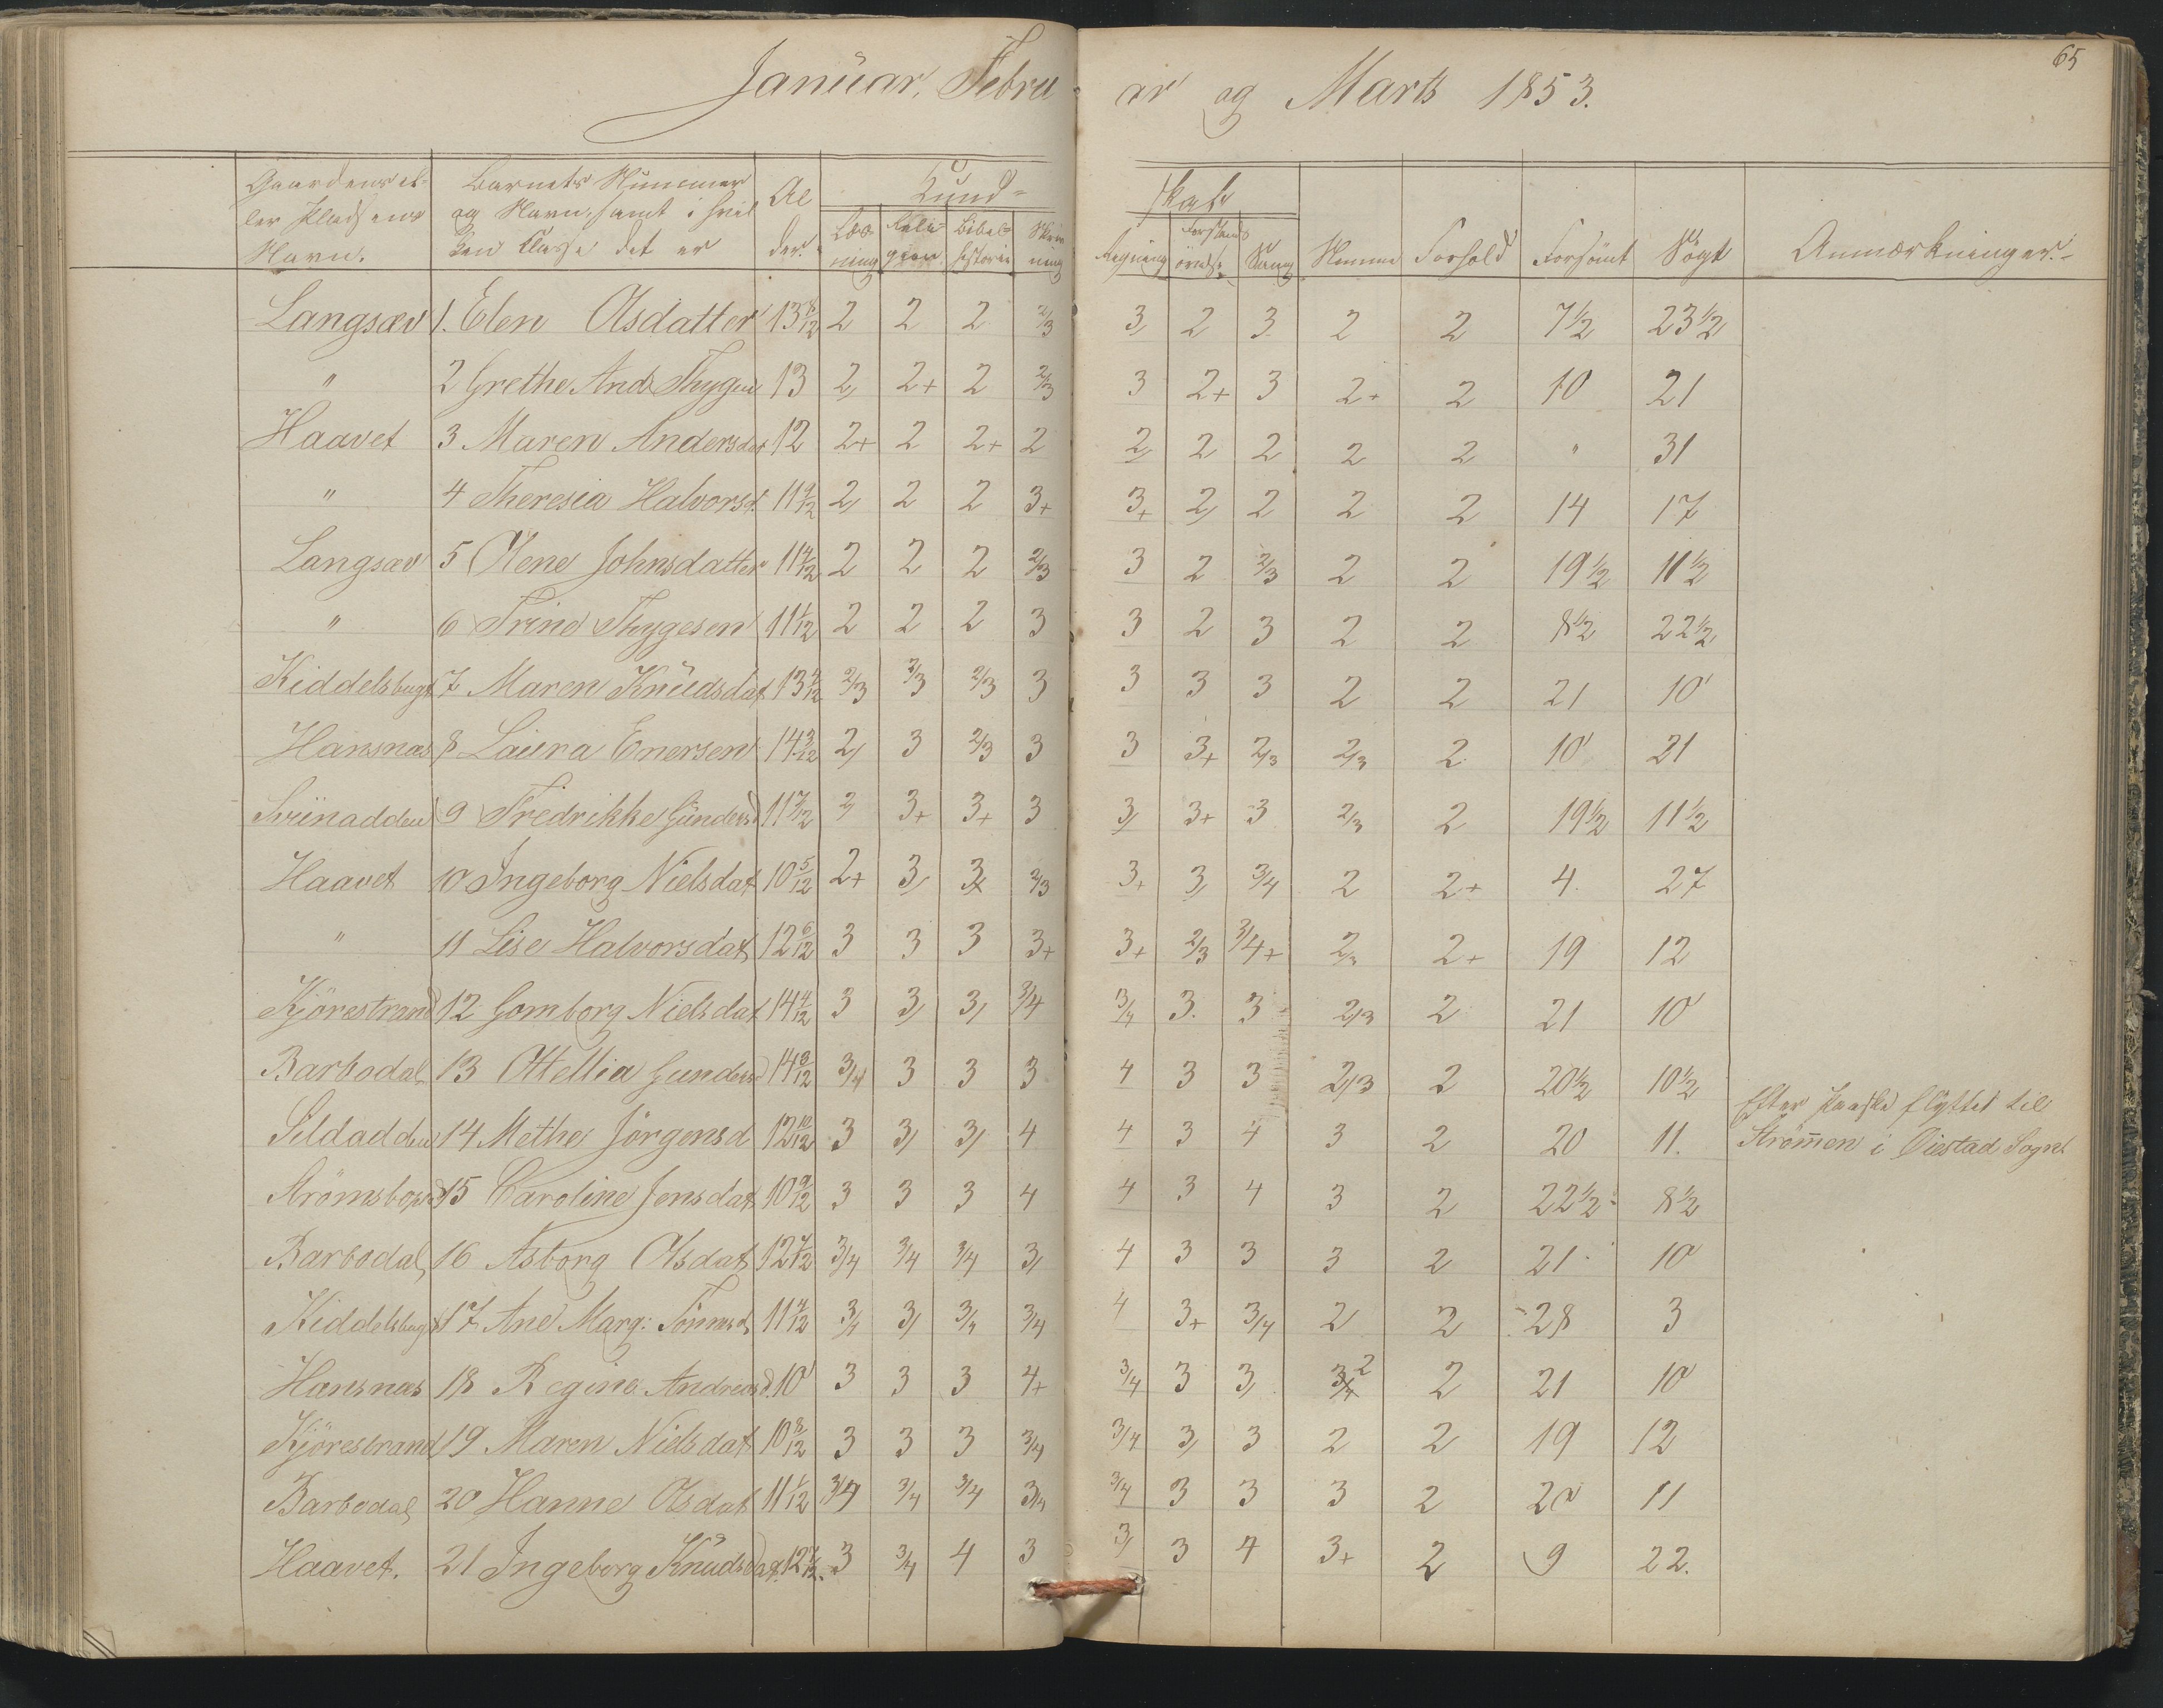 65
Januar, Febru ar og Marts 1853.
Gaardens el- ler Pladsens Navn. Barnets Nummer og Navn, samt i hvil ken Classe det er Al der. Kund- skab
Læs- ning Reli- gion Bibel- historie Skriv ning Regning Forstands øvelse Sang Nemme Forhold Forsömt Sögt Anmærkninger.
Langsæv 1. Elen Olsdatter 13 8/12 2 2 2 2/3 3, 2 3 2 2 7½ 23½
" 2 Grethe And. Thygesen 13 2, 2+ 2 2/3 3 2+ 3 2+ 2 10 21
Haavet 3 Maren Andersdat 12 2+ 2 2+ 2 2, 2 2 2 2 " 31
" 4 Theresia Halvorsd. 11 9/12 2, 2 2 3+ 3+ 2, 2 2 2 14 17
Langsæv 5 Olene Johnsdatter 11 4/12 2 2 2 2/3 3 2 2/3 2 2 19½ 11½
" 6 Trine Thygesen 11 1/12 2 2 2 3 3 2 3 2 2 8½ 22½
Kiddelsbugt 7 Maren Knudsdat 13 4/12 2/3 2/3 2/3 3 3 3 3 2 2 21 10
Hansnæs 8 Laura Enersen 14 3/12 2, 3 2/3 3 3 3+ 2/3 2/3 2 10 21
9 Fredrikke Gundersd 11 7/12 3+ 3+ 3 3, 3+ 3 2/3 2 19½ 11½
Haavet 10 Ingeborg Nielsdat 10 5/12 2+ 3, 3 2/3 3+ 3, 3/4 2 2+ 4. 27
" 11 Lise Halvorsdat 12 6/12 3 3 3 3+ 3+ 2/3 3/4+ 2/3 2+ 19 12
Kjörestrand 12 Gomborg Nielsdat 14 4/12 3 3, 3, 3/4 3/4 3. 3 2/3 2 21 10
Barbodal 13 Otellia Gundersd 14 8/12 3/4 3 3 3 4 3 3 2/3 2 20½ 10½
Sildodden 14 Methe Jörgensd 12 10/12 3 3, 3, 4 4 3 4 3 2 20 11. Efter Paaske flyttet til
Strömmen i Öiestad Sogn
Strömsbo 15 Caroline Jensdat 10 9/12 3 3 3 4 4 3 4 3 2 22½ 8½
Barbodal 16 Asborg Olsdat 12 7/12 3/4 3/4 3/4 3, 4 3 3 3 2 21 10
Kiddelsbugt 17 Ane Marg: Tönnesd 11 4/12 3/4 3, 3/4 3/4 4 3+ 3/4 2 2 28 3
Hansnæs 18 Regine Andreasd. 10 3 3 3 4+ 3/4 3 3, 2 2 21 10
Kjörestrand 19 Maren Nielsdat 10 8/12 3 3 3 3/4 3/4 3, 3 2 2 19 12
Barbodal 20 Hanne Olsdat 11 1/12 3/4 3/4 3/4 3/4 3/4 3 3 3 2 20 11
Haavet. 21 Ingeborg Knudsdat. 12 3 3/4 4 3 3, 3 4 3+ 2 9 22.